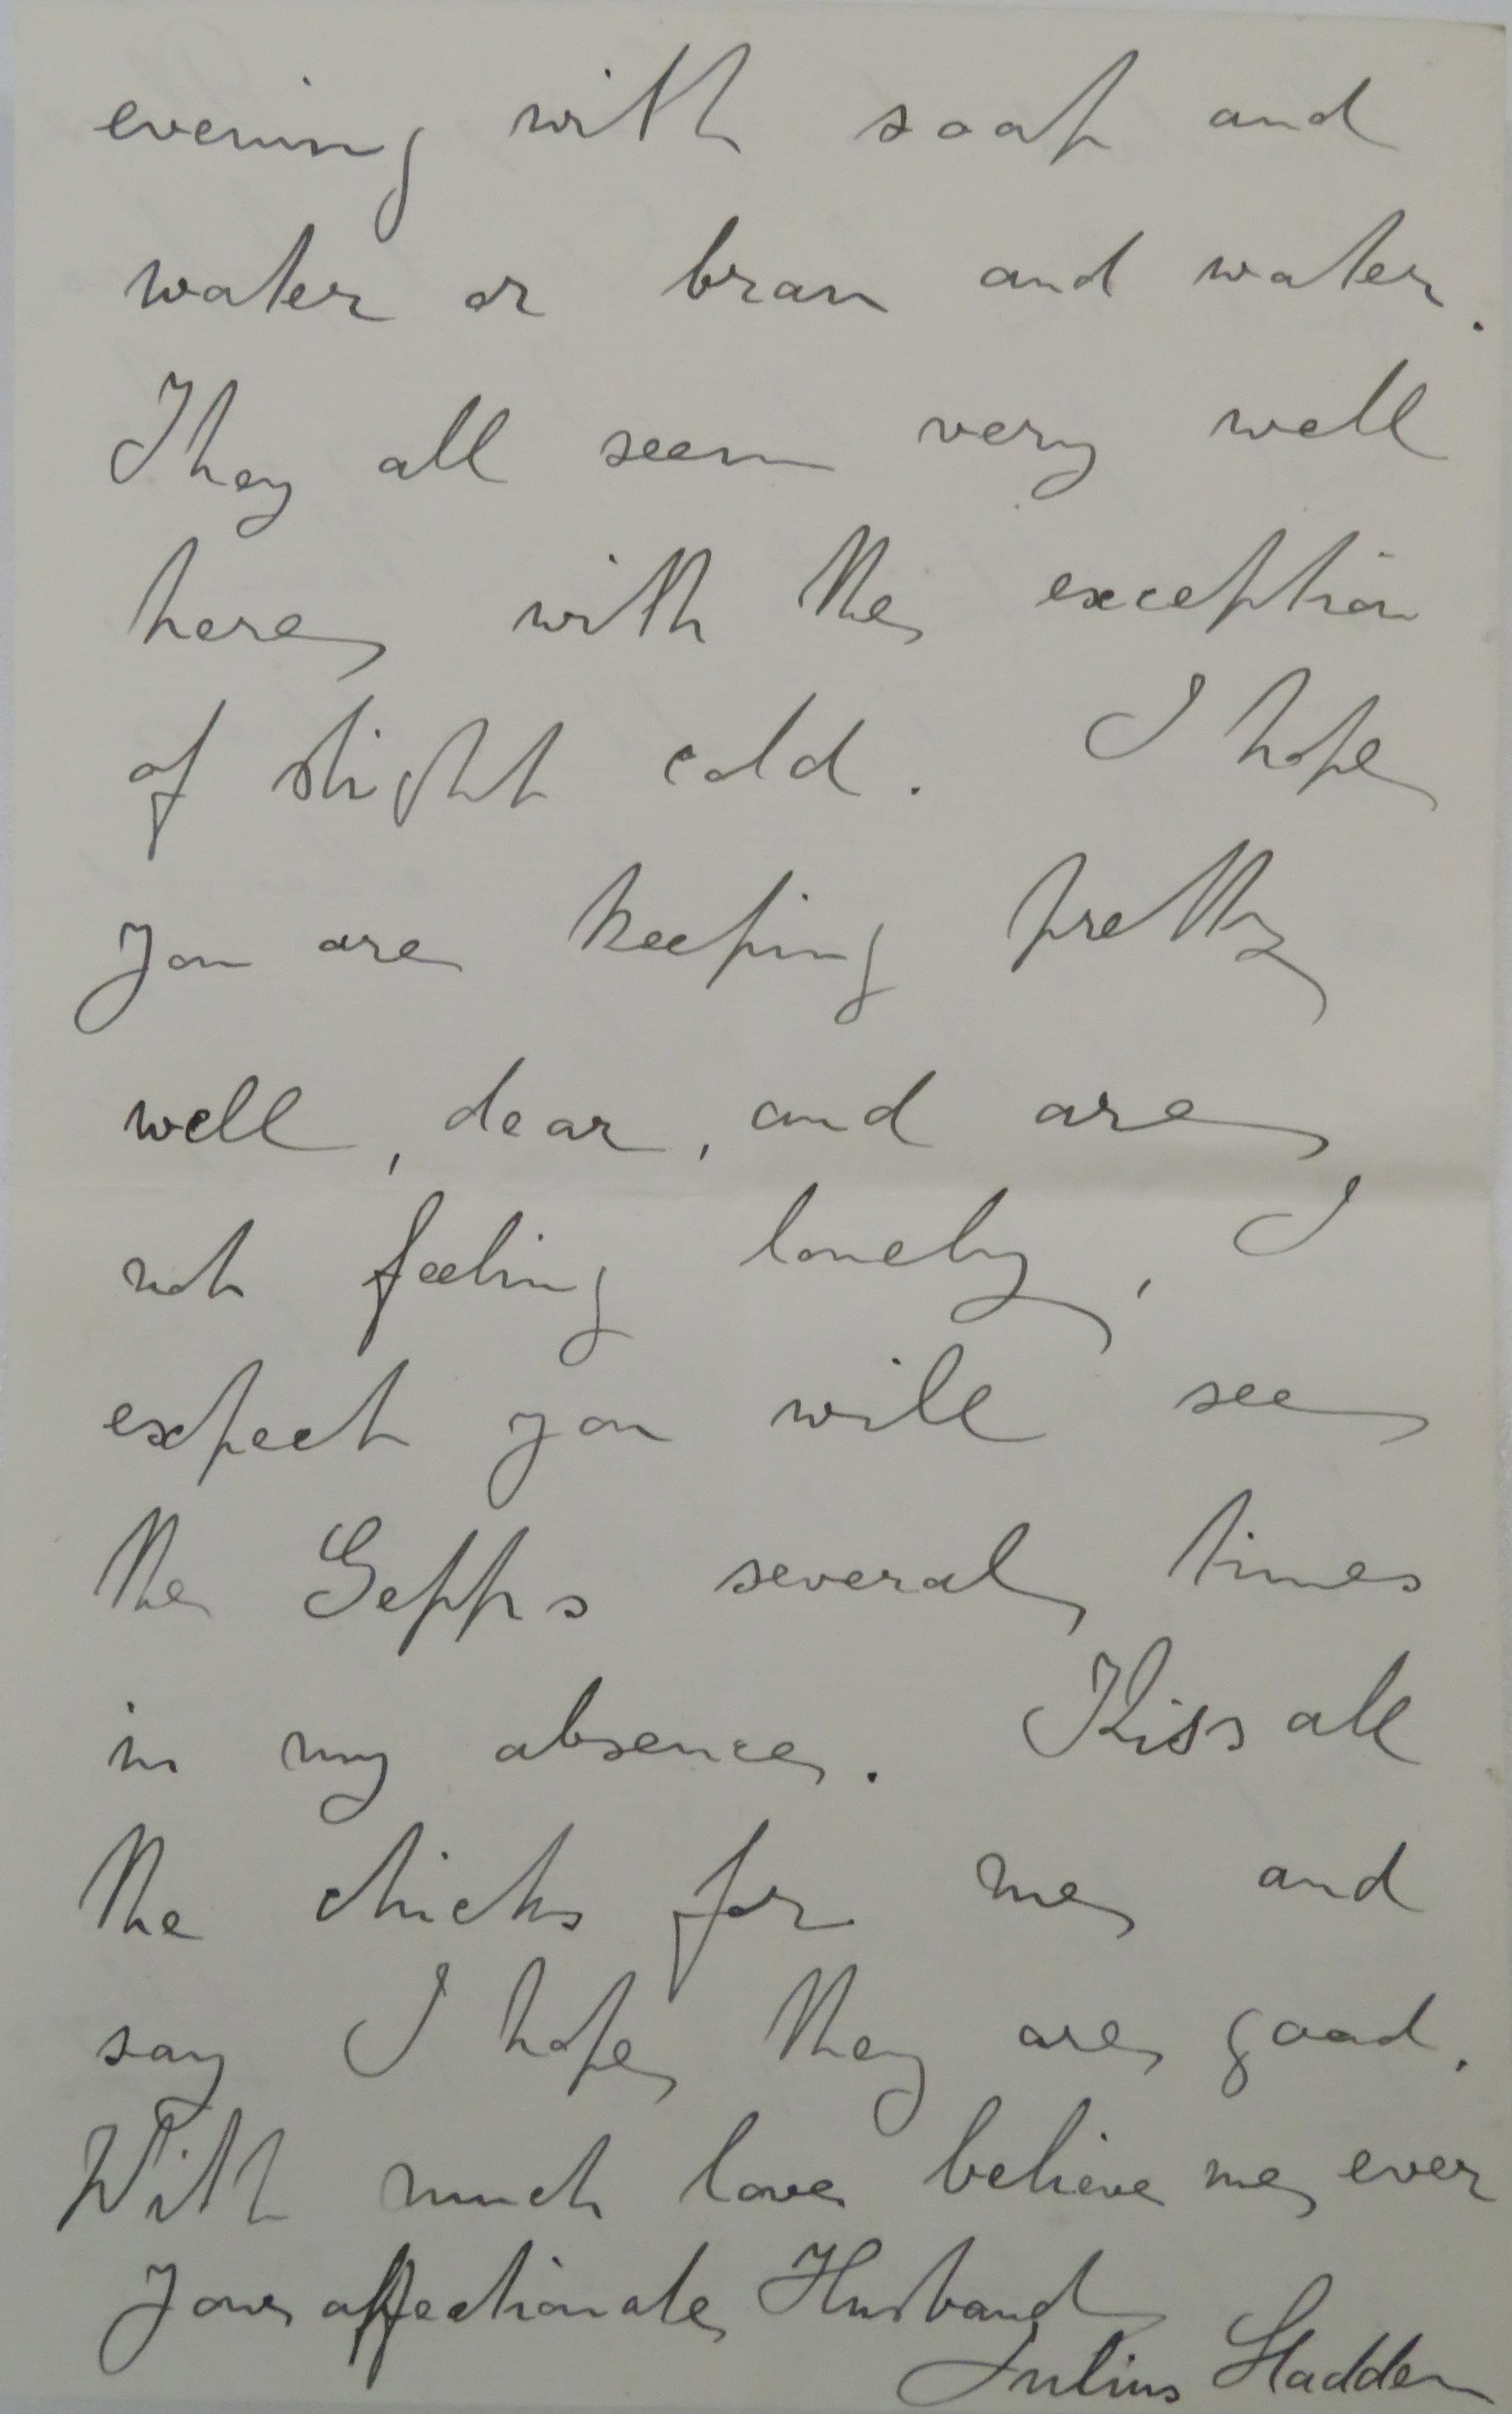 evening with soap and
water or bran and water.
They all seem very well
here with the exception
of slight cold. I hope
you are keeping pretty
well, dear, and are
not feeling lonely, I
expect you will see
the Gepps several times
in my absence. Kiss all
the chicks for me and
say I hope they are good.
With much love believe me ever
Your affectionate Husband
Julius Sladden